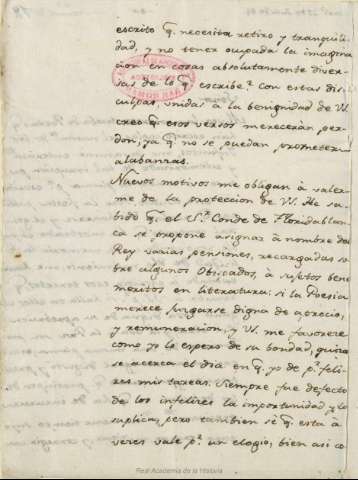 escrito q. necesita retiro y tranquili-
dad, y no tener ocupada la imagina
cion en cosas absolutamente diver-
sas de lo q. escribe. Con estas dis-
culpas, unidas a la benignidad de VS.
creo q. esos versos mereceran per-
don, ya q. no se puedan prometer
alabanzas.
Nuevos motivos me obligan à valer-
me de la proteccion de VS. He sa-
bido q. el S.r Conde de Floridablan
ca se propone asignar à nombre del
Rey varias pensiones, recargadas so
bre algunos Obispados, à sujetos bene
meritos en literatura: si la Poesia
merece juzgarse digna de aprecio,
y remuneracion, y VS. me favorece
como yo lo espero de su bondad, quizà
se acerca el dia en q. yo de p.r feli-
zes mis tareas. Siempre fue defecto
de los infelizes la importunidad, y la
suplica, pero tambien sè q. esta à
veces vale p.r un elogio; bien asi co
Real Academia de la Historia